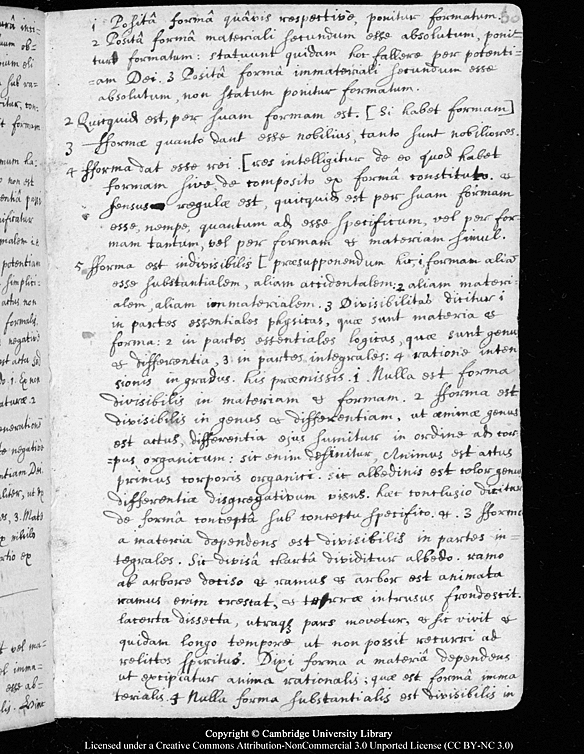 1 Positâ formâ quâvis respective, ponitur formatum.
2 Positâ formâ materiali secundum esse absolutum, poni-
tur formatum: statuunt quidam hoc fallere per potenti-
=am Dei. 3 Positâ formâ immateriali secundum esse
absolutum, non statum ponitur formatum.
2 Quicquid est, per suam formam est. [Si habet formam]
3 fformæ quanto dant esse nobilius, tanto sunt nobiliores.
4 fforma dat esse rei. [res intelligitur de eo quod habet
formam sive de composito ex formâ constituto. &
sensus regulæ est, quicquid est per suam formam
esse, nempe, quantum ad esse specificum, vel per for-
mam tantum, vel per formam & materiam simul.
5 fforma est indivisibilis [præsupponendum hic, 1 formam aliâ
esse substantialem, aliam accidentalem: 2 aliam materi-
alem, aliam immaterialem. 3 Divisibilitas dicitur 1
in partes essentiales physicas, quæ sunt materia &
forma: 2 in partes essentiales logicas, quæ sunt genus
& differentia, 3 in partes integrales: 4 ratione inten
sionis in gradus. his præmissis. 1. Nulla est forma
divisibilis in materiam & formam. 2 fforma est
divisibilis in genus & differentiam, ut animæ genus
est actus, differentia ejus sumitur in ordine ad cor-
=pus organicum: sic enim definitur, Animus est actus
primus corporis organici. sic albedinis est color genus
differentia disgregativum visus. hæc conclusio dicitur
de formâ conceptâ sub conceptu specifico. &. 3 fforma
a materia dependens est divisibilis in partes in-
tegrales. Sic divisâ chartâ dividitur albedo. ramo
ab arbore deciso & ramus & arbor est animata
ramus enim crescat, & terræ intrusus frondescit.
lacerta dissecta, utraq pars movetur, & sic vivit &
quidam longo tempore ut non possit recurri ad
relictos spiritus. Dixi forma a materiâ dependens
ut excipiatur anima rationalis; quæ est forma imma
terialis. 4 Nulla forma substantialis est divisibilis in
Copyright © Cambridge University Library
Licensed under a Creative Commons Attribution-NonCommercial 3.0 Unported License (CC BY-NC 3.0)